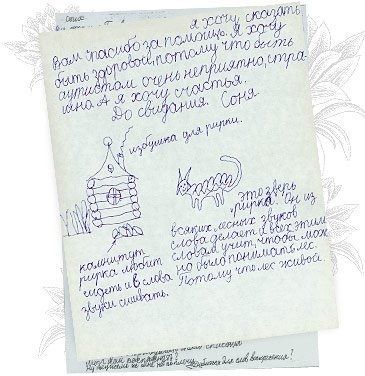 я хочу сказать
Вам спасибо за помощь. Я хочу
быть здоровой, потому что быть
аутистом очень неприятно, стра-
шно. А я хочу счастья.
До свидания. Соня.
избушка для рирки.
это зверь
рирка. Он из
всяких лесных звуков
слова делает и всех этим
словам учит, чтобы мож
но было понимать лес.
Потому что лес живой.
рирка любит
сидеть и в слова
звуки сшивать.